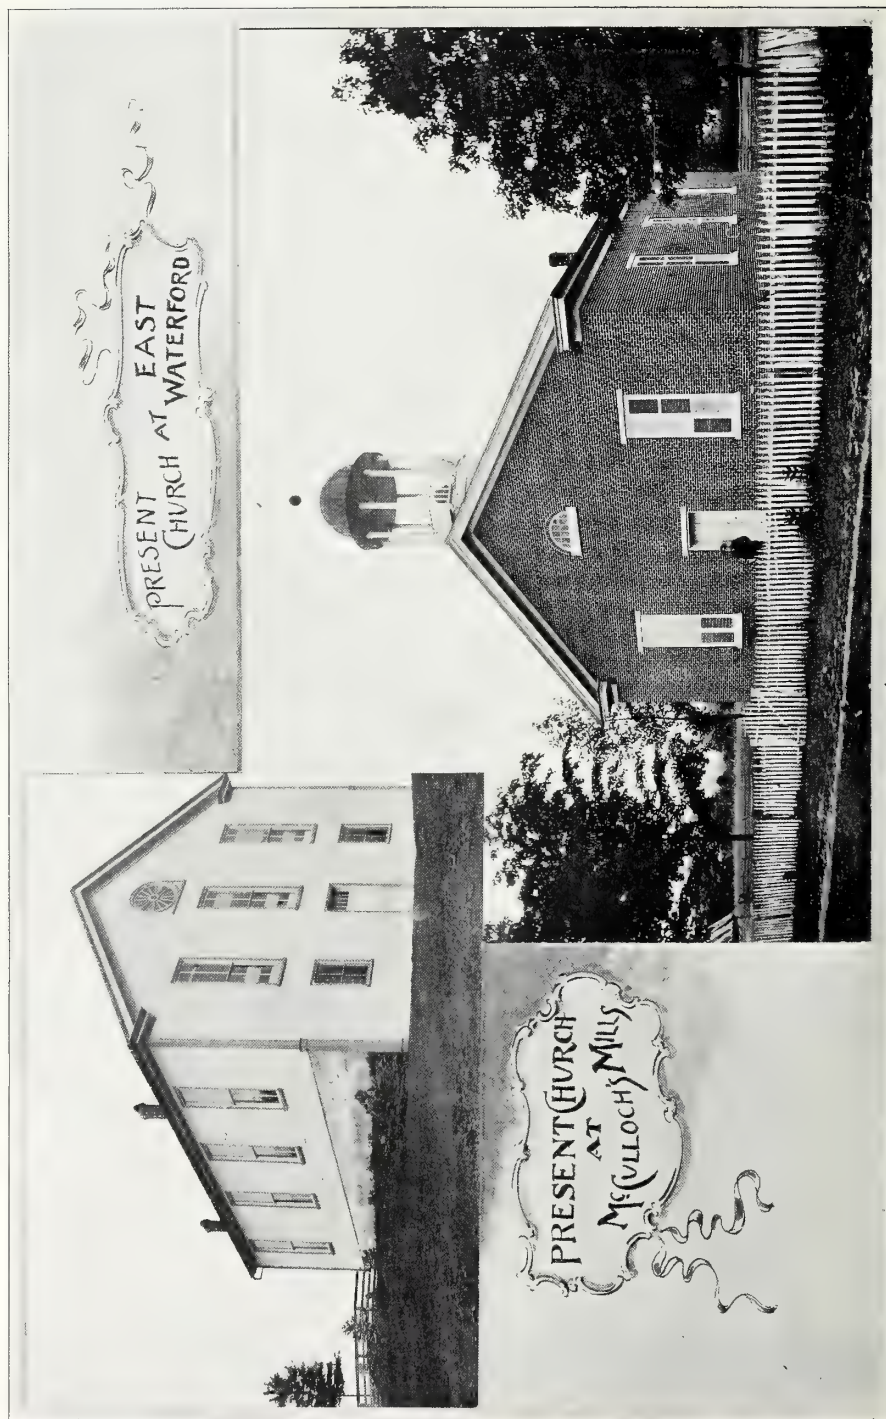 PRESENT
CHURCH AT EAST
WATERFORD
PRESENT CHURCH
AT
McCULLOCH'S MILLS